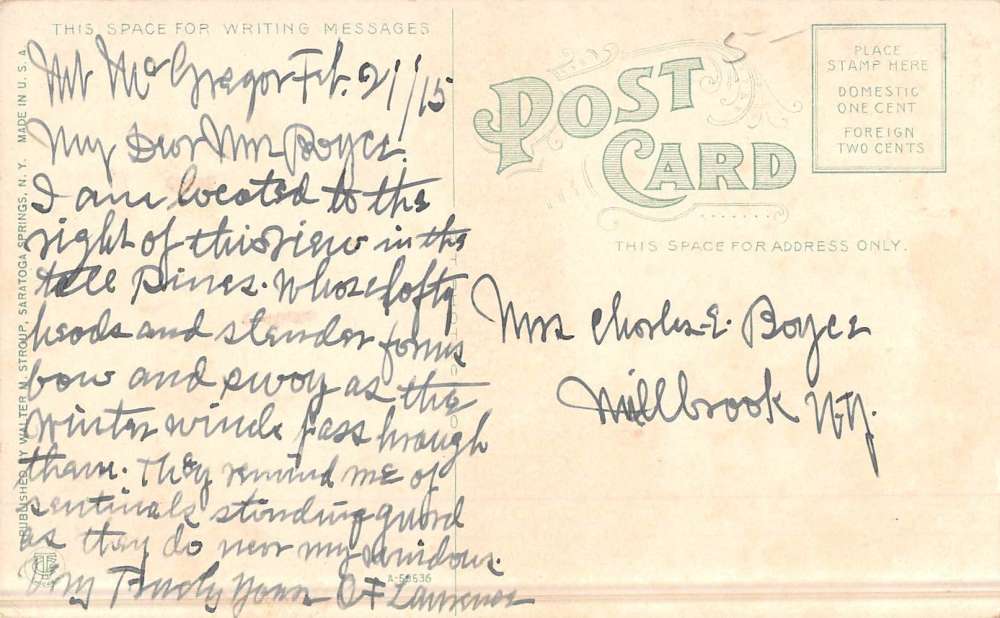 THIS SPACE FOR WRITING MESSAGES
Mt McGregor Feb. 21/15
My Dear Mrs Boyce.
I am located to the
right of this view in the
tall Pines. Whose lofty
heads and slender forms
bow and sway as the
Winter winds pass hrough
them. They remind me of
sentinals standing guard
as they do near my windows.
Very Truly Yours O F Lawrence
PUBLISHED BY WALTER M. STROUP, SARATOGA SPRINGS, N. Y. MADE IN U. S. A.
A-59536
POST
CARD
PLACE
STAMP HERE
DOMESTIC
ONE CENT
FOREIGN
TWO CENTS
THIS SPACE FOR ADDRESS ONLY.
Mrs Charles E. Boyce
Millbrook N.Y.